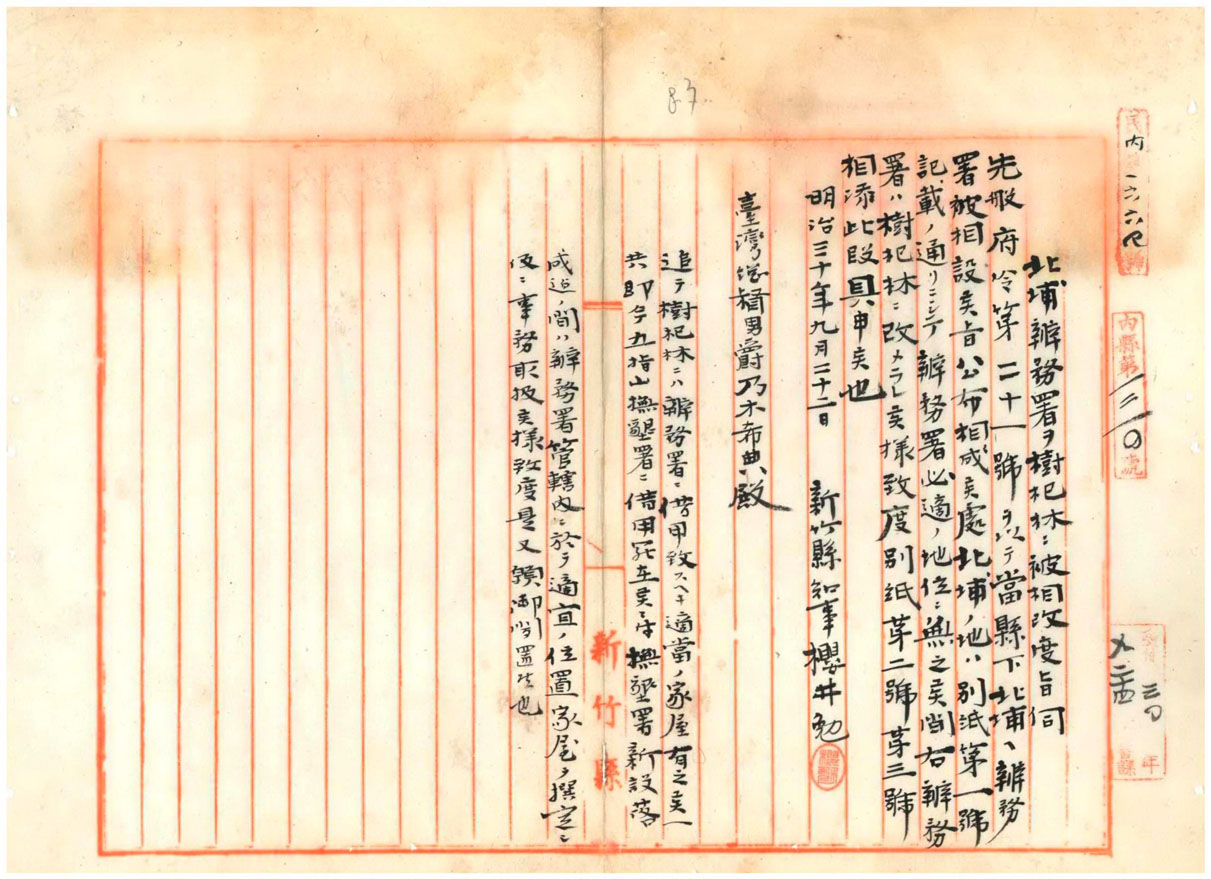 北埔辨務署ヲ樹杞林ニ被相改度旨伺
先般府令第二十一號ヲ以テ當縣下北埔ヘ辨務
署被相設候旨公布相成候處北埔ノ地ハ別紙第一號
記載ノ通リニシテ辨務署必適ノ地位ニ無之候間右辨務
署ハ樹杞林ニ改メラレ候樣致度別紙第二號第三號
相添此段具申候也
明治三十年九月二十二日
新竹縣知事櫻井勉
臺灣總督男爵乃木希典殿
追テ樹杞林ニハ辨務署ニ借用致スヘキ適當ノ家屋有之候ヘ
共即今五指山撫墾署ニ借用罷在候ニ付撫墾署新設落
成迄ノ間ハ辨務署管轄內ニ於テ適宜ノ位置家屋ヲ撰定シ
仮ニ事務取扱候樣致度是又御聞置
新竹縣
87
內縣第三一〇號